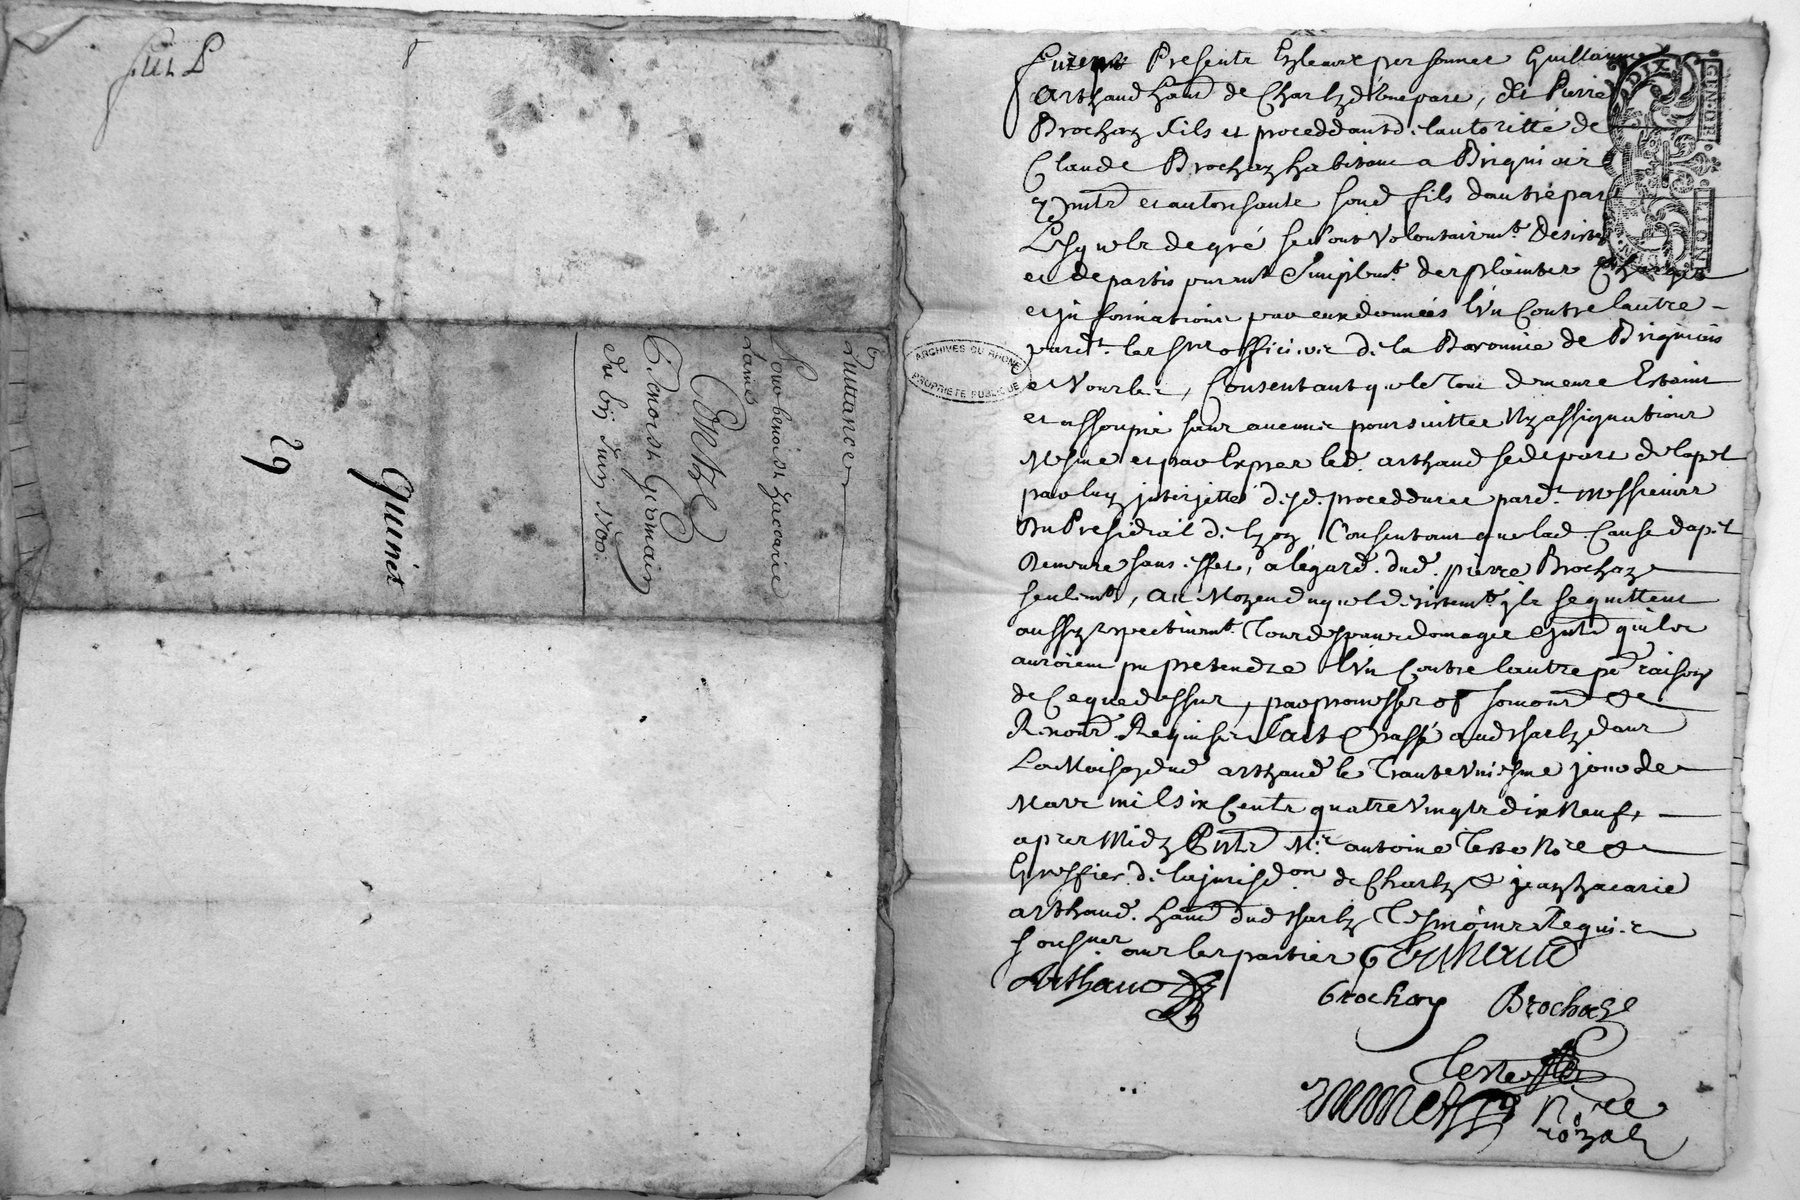 8
Quittance
Pour benoist Zaccarie
Lainé
Contre
Benoist Germain
Du bij Juin 1700
Quinet
29
ARCHIVES DU RHONE
PROPRIETE PUBLIQUE
GEN. DE
LION
DIX
Furent Presents En leurs personnes Guillaume
Arthaud hant de Charly d'une part, Et Pierre
Brochay fils et proceddant de lautoritté de
Claude Brochay habitant a Brignais
pnt et autorisante sond fils dautre part
Lesquels de gré se sont Volontairemt Desistés
et departis puremt Simplemt des plaintes Charges
et informations par eux données L'un Contre lautre
pardt les srs officiers de la Baronnie de Brignais
et Vourles, Consentant que le Tout demeure Esteint
et assoupie sans aucunes poursuittes Ny assignations
Mesme et par Exprez led. arthaud se depart de lapel
par luy interjetté desd. proceddures pardt Messieurs
Du Presidial de Lyon Consentant que lad. Cause dapel
Demeure sans effet, a légard dud. pierre Brochay
seulemt, Au Moyen duquel desistemt ils se quittent
aussy respectivemt Tous despans domages Intd quils
auroient pu pretendre L'un Contre lautre pr raison
de Ce que dessus, par promesses
Renond Requises fait & passé aud Charly dans
La Maison dud arthaud le Trante Uniesme jour de
Mars mil six Cents quatre Vingts dix Neuf,
apres Midy Pnts Mre antoine Teste Nore &
Greffier de la jurisdon de Charly & jean Zacarie
arthaud hant dud Charly Tesmoins Requis
soussnes avec les parties G Arthaud
Arthaud
brochay Brochay
Teste
Nore
royal